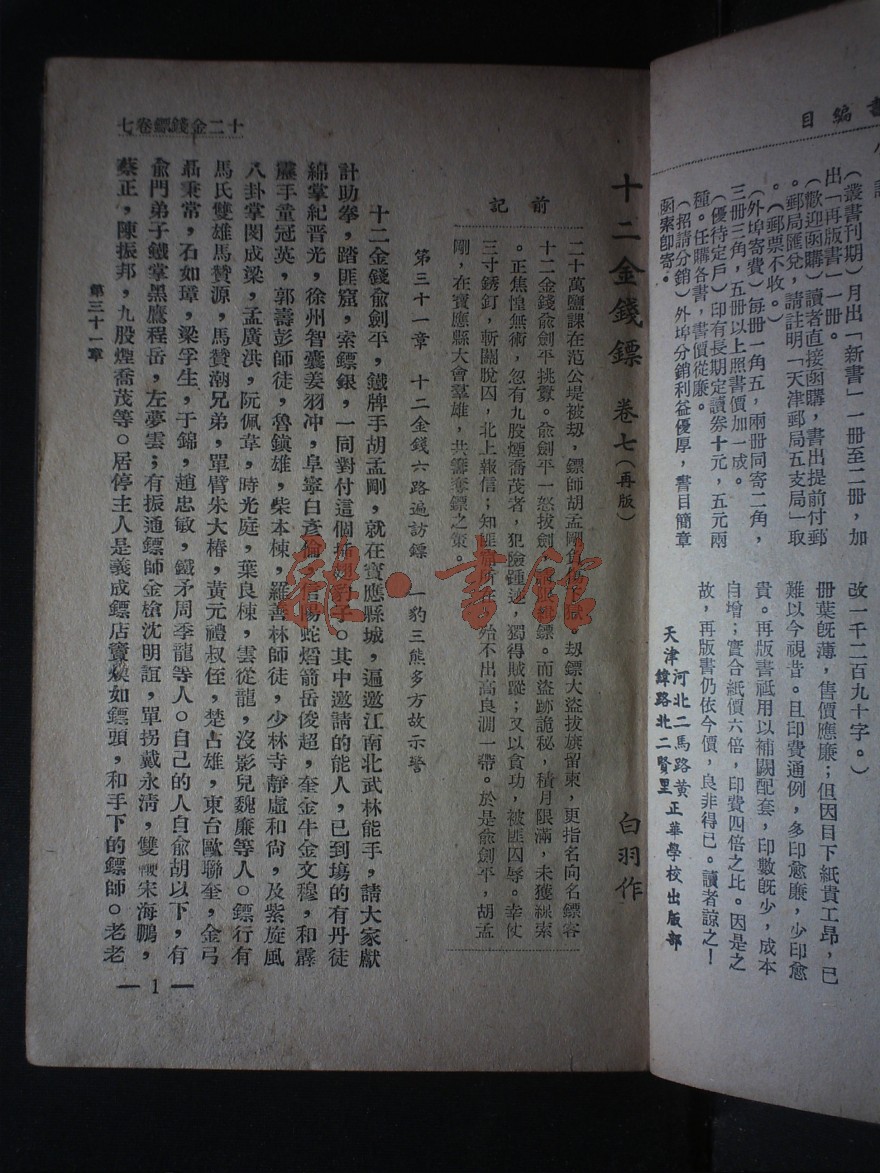 編目
（叢書刊期）月出「新書」一冊至二冊，加
出「再版書」一冊。
（歡迎函購）讀者直接函購，書出提前付郵
。郵局匯兌，請註明「天津郵局五支局」取
。（郵票不收。）
（外埠寄費）每冊一角五，兩冊同寄二角，
三冊三角，五冊以上照書價加一成。
（優待定戶）印有長期定讀券十元，五元兩
種。任購各書，書價從廉。
（招請分銷）外埠分銷利益優厚，書目簡章
函索即寄。
改一千二百九十字。）
冊葉既薄，售價應廉；但因目下紙貴工昂，已
難以今視昔。且印費通例，多印愈廉，少印愈
貴。再版書祗用以補闕配套，印數既少，成本
自增；實合紙價六倍，印費四倍之比。因是之
故，再版書仍依今價，良非得已。讀者諒之！
天津河北二馬路黃
緯路北二賢里
正華學校出版部
十二金錢鏢卷七
十二金錢鏢 卷七（再版） 白羽作
前記
二十萬鹽課在范公堤被刧，鏢師胡孟剛。刧鏢大盜拔旗留柬，更指名向名鏢客
十二金錢俞劍平挑釁。俞劍平一怒拔劍，鏢。而盜跡詭秘，積月限滿，未獲線索
。正焦惶無術，忽有九股煙喬茂者，犯險踵迹，獨得賊蹤；又以貪功，被匪囚辱。幸仗
三寸銹釘，斬關脫囚，北上報信；知匪，殆不出高良澗一帶。於是俞劍平，胡孟
剛，在寶應縣大會羣雄，共籌奪鏢之策。
第三十一章 十二金錢六路遍訪鏢 一豹三熊多方故示警
十二金錢俞劍平，鐵牌手胡孟剛，就在寶應縣城，遍邀江南北武林能手，請大家獻
計助拳，踏匪窟，索鏢銀，一同對付這個插翅豹子。其中邀請的能人，已到塲的有丹徒
綿掌紀晋光，徐州智囊姜羽冲，阜寧白彥倫，信陽蛇焰箭岳俊超，奎金牛金文穆，和霹
靂手童冠英，郭壽彭師徒，魯鎮雄，柴本棟，羅善林師徒，少林寺靜虛和尚，及紫旋風
八卦掌閔成梁，孟廣洪，阮佩韋，時光庭，葉良棟，雲從龍，沒影兒魏廉等人。鏢行有
馬氏雙雄馬贊源，馬贊潮兄弟，單臂朱大椿，黃元禮叔侄，楚占雄，東台歐聯奎，金弓
聶秉常，石如璋，梁孚生，于錦，趙忠敏，鐵矛周季龍等人。自己的人自俞胡以下，有
俞門弟子鐵掌黑鷹程岳，左夢雲；有振通鏢師金槍沈明誼，單拐戴永清，雙鞭宋海鵬，
蔡正，陳振邦，九股煙喬茂等。居停主人是義成鏢店竇煥如鏢頭，和手下的鏢師。老老
第三十一章
— 1 —